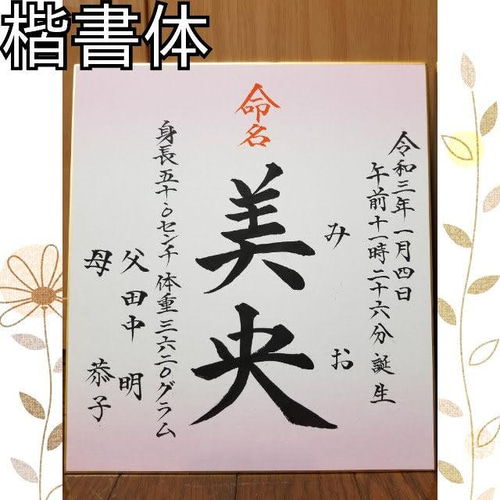 楷書体
命名
令和三年一月四日
午前十一時二十六分 誕生
みお
美央
身長五十.〇センチ 体重三六二〇グラム
父 田中 明
母 恭子